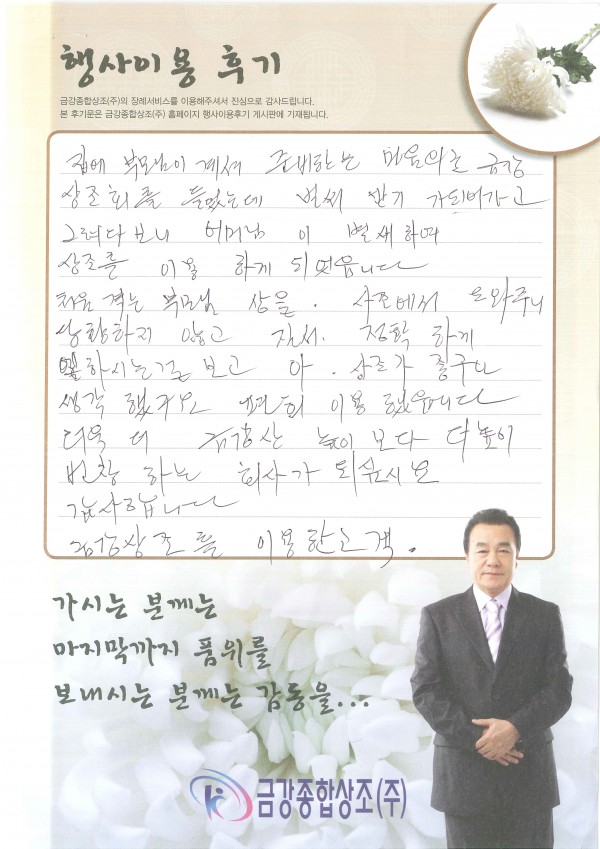 행사이용 후기
금강종합상조(주)의 장례서비스를 이용해주셔서 진심으로 감사드립니다.
본 후기문은 금강종합상조(주) 홈페이지 행사이용후기 게시판에 기재됩니다.
집에 부모님이 계셔 준비하는 마음의로 금강
상조회를 들었는데 벌써 만기 가되어가고
그러다보니 어머님이 별세하며
상조를 이용 하게 되엿읍니다
처음 격는 부모님 상을. 사조에서 도와주니
당황하지 않고 진서. 정확 하게
하시는걸 보고 아. 상조가 좋구나
생각 했구요 편희 이용 했읍니다
더욱 더 금강산 높이 보다 더높이
번창 하는 회사가 되십시요
감사합니다
금강상조를 이용한고객.
가시는 분께는
마지막까지 품위를
보내시는 분께는 감동을...
금강종합상조(주)